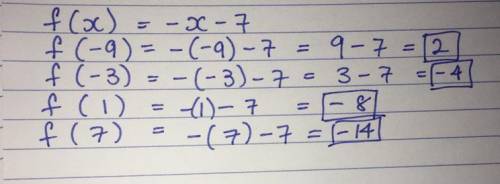 f(x) = -x-7
f(-9) = -(-9)-7 = 9-7 = 2
f(-3) = -(-3)-7 = 3-7 = -4
f(1) = -(1)-7 = -8
f(7) = -(7)-7 = -14